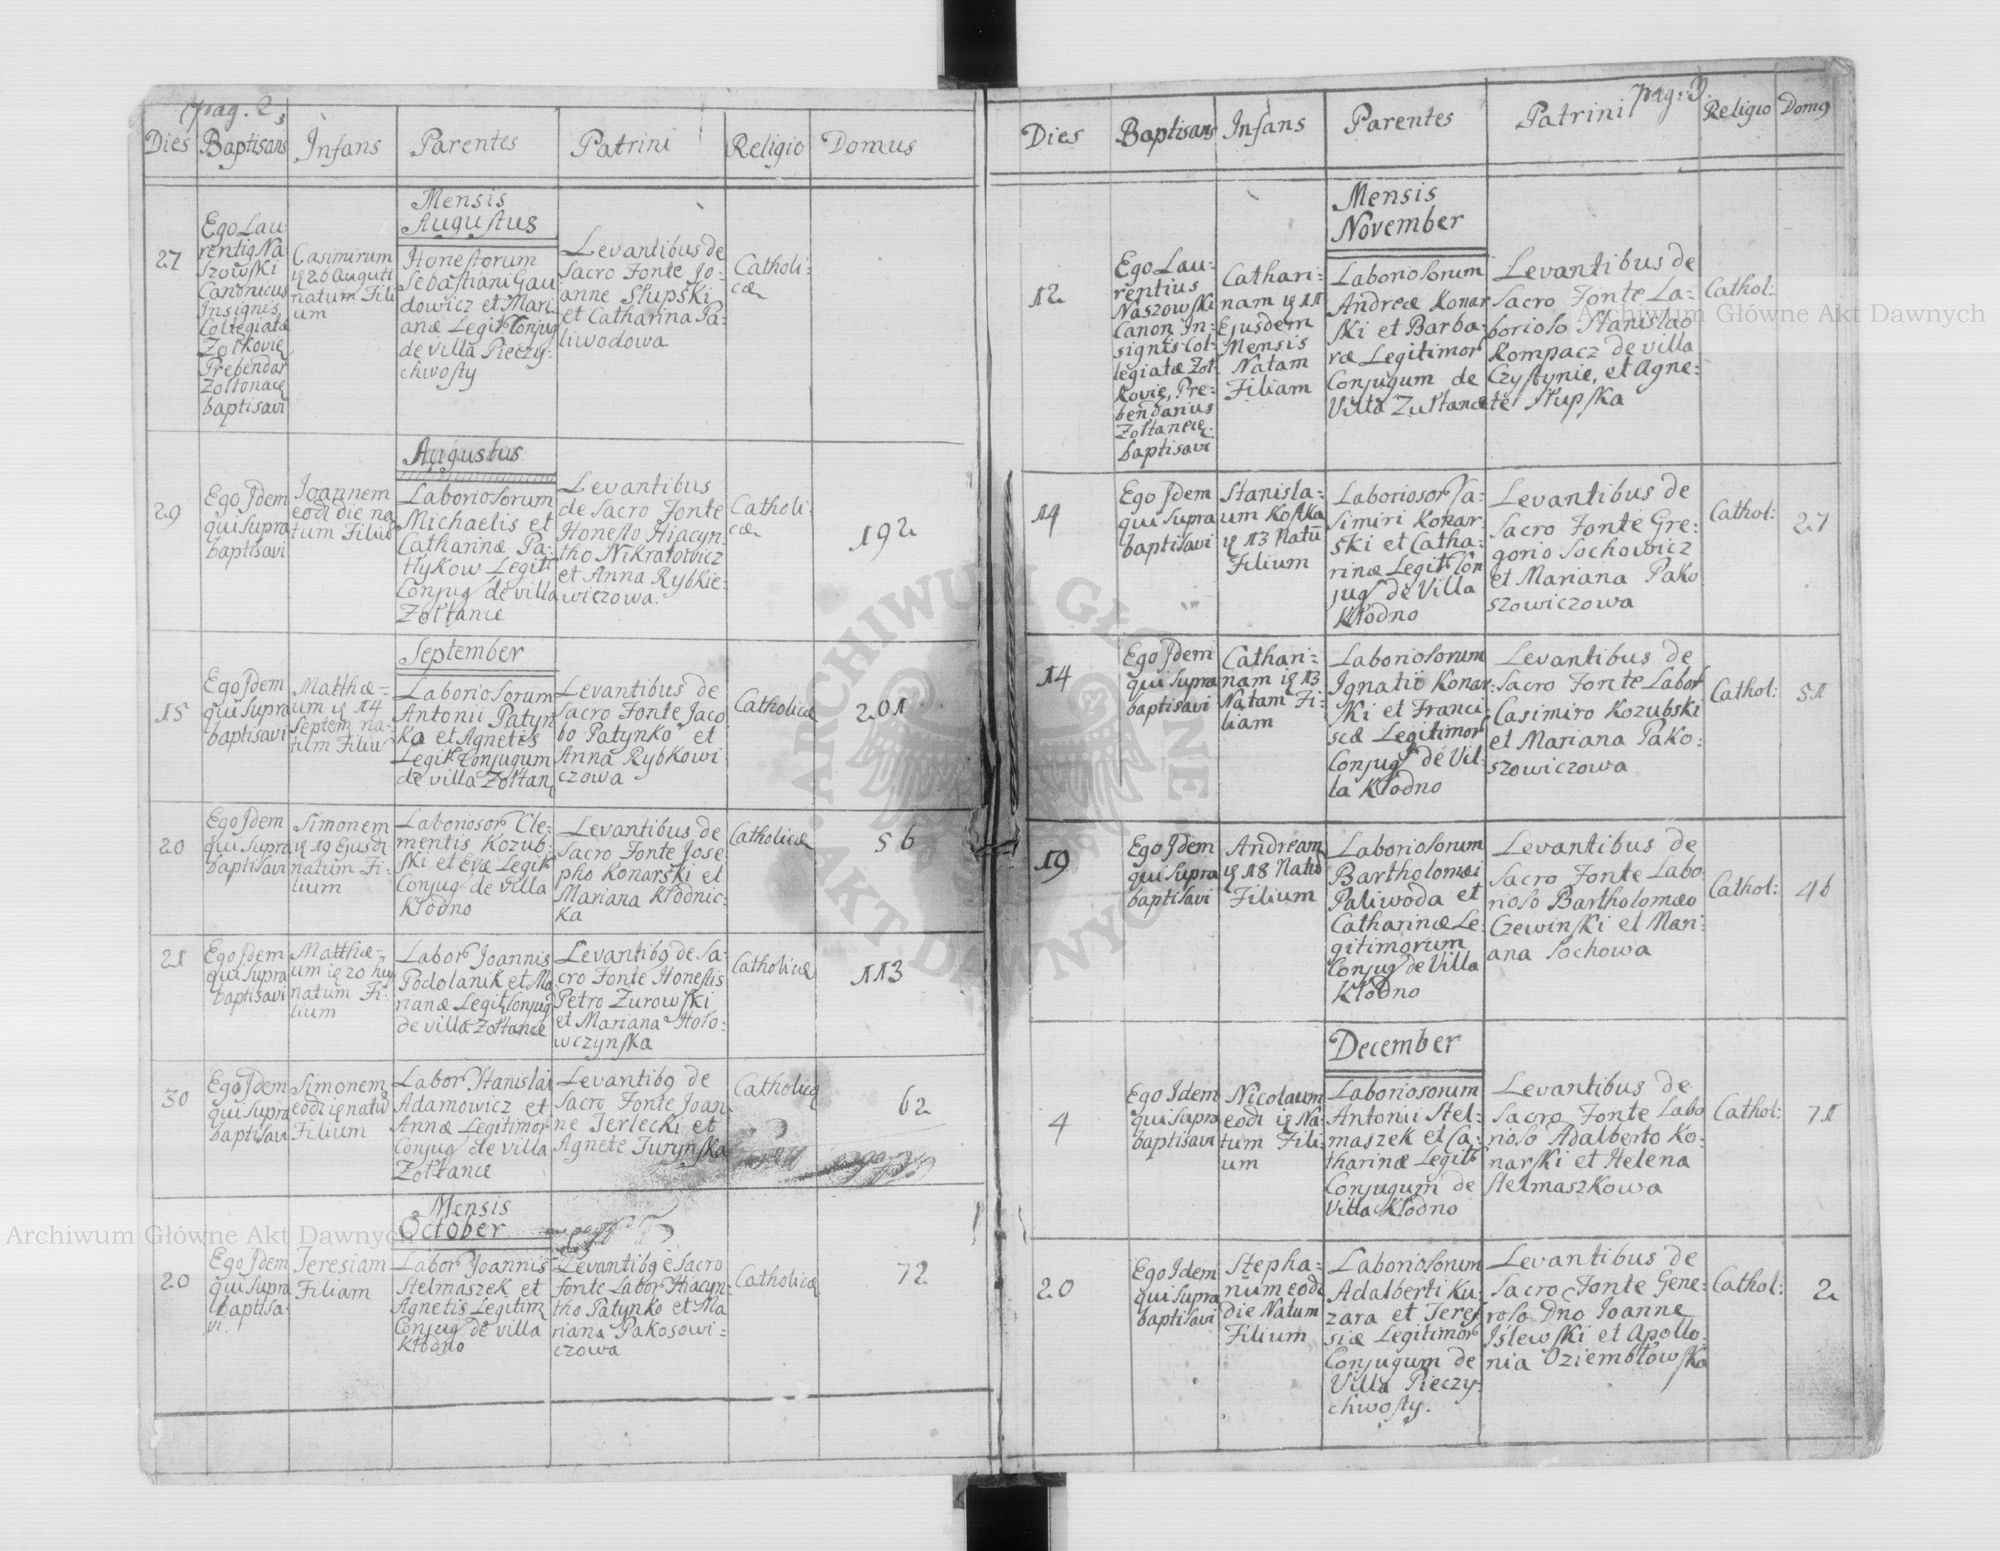 pag. 2
Dies
Baptisans
Infans
Parentes
Patrini
Religio
Domus
Mensis
Augustus
27
Ego Lau-
rentig Na-
szowski
Canonicus
Insignis
Collegiatæ
Zołkovie
Prebendar
Zołtonace
baptisavi
Casimirum
natum Fili
um
Honestorum
Sebastiani Gau
dowicz et Mari
anæ Legit Conjug
de villa Pieczy-
chwosty
Levantibus de
Sacro Fonte Jo-
anne Słupski
et Catharina Pa-
liwodowa
Catholi-
cæ
Augustus
29
Ego Jdem
qui supra
baptisavi
Joannem
eodi die na
tum Filiu
Laboriosorum
Michaelis et
Catharinæ Pa-
tłykow Legit
Conjug de villa
Zołtance
Levantibus
de Sacro Fonte
Honesto Hiacyn-
tho Nikratowicz
et Anna Rybkie-
wiczowa.
Catholi-
cæ
192
September
15
Ego Jdem
qui supra
baptisavi
Matthæ-
um ig 14
Septem na-
tum Filiu
Laboriosorum
Antonii Patyn
ko et Agnetis
Legit Conjugum
de villa Zołtan
Levantibus de
Sacro Fonte Jaco
bo Patynko et
Anna Rybkowi
czowa
Catholicæ
201
20
Ego Jdem
qui supra
baptisavi
Simonem
ig 19 Ejusdi
natum Fi-
lium
Laboriosor Cle-
mentis Kozub-
ski et Evæ Legit
Conjug de villa
Kłodno
Levantibus de
Sacro Fonte Jose-
pho Konarski et
Mariana Kłodnic-
ka
Catholicæ
56
21
Ego Jdem
qui supra
baptisavi
Matthæ-
um ig 20 huj
natum Fi-
lium
Labor Joannis
Podolanik et Ma
rianæ Legit Conjug
de villa Zołtance
Levantibg de Sa-
cro Fonte Honestis
Petro Zurowski
et Mariana Hoło-
wczynska
Catholicæ
113
30
Ego Jdem
qui supra
baptisavi
Simonem
eodi ig natu
Filium
Labor Stanislai
Adamowicz et
Annæ Legitimor
Conjug de villa
Zołtance
Levantibg de
Sacro Fonte Joan-
ne Jerlecki et
Agnete Jurynska
Catholicæ
62
Mensis
October
20
Ego Jdem
qui supra
baptisa-
vi.
Teresiam
Filiam
Labor Joannis
Stelmaszek et
Agnetis Legitim
Conjug de villa
Kłodno
Levantibg e Sacro
Fonte Labor Hiacyn-
tho Patynko et Ma
riana Pakosowi-
czowa
Catholicæ
72
pag. 3.
Dies
Baptisans
Infans
Parentes
Patrini
Religio
Domg
Mensis
November
12
Ego Lau-
rentius
Naszowski
Canon In-
signis Col-
legiatæ Zoł-
kovie, Pre-
bendarius
Zołtanece
baptisavi
Cathari-
nam ig 11
Ejusdem
Mensis
Natam
Filiam
Laboriosorum
Andreæ Konar
ski et Barba-
ræ Legitimor
Conjugum de
Villa Zułtance
Levantibus de
Sacro Fonte La-
borioso Stanislao
Kompacz de villa
Czystynie, et Agne-
te Słupska
Cathol:
14
Ego Jdem
qui supra
baptisavi
Stanisla-
um Kostka
ig 13 Natū
Filium
Laboriosor Ca-
simiri Konar-
ski et Catha-
rinæ Legit Con
jug de Villa
Kłodno
Levantibus de
Sacro Fonte Gre-
gorio Sochowicz
et Mariana Pako
szowiczowa
Cathol:
27
14
Ego Jdem
qui supra
baptisavi
Cathari-
nam ig 13
Natam Fi-
liam
Laboriosorum
Ignatii Konar-
ski et Franci
scæ Legitimor
Conjug de Vil-
la Kłodno
Levantibus de
Sacro Fonte Labor
Casimiro Kozubski
et Mariana Pako-
szowiczowa
Cathol:
51
19
Ego Jdem
qui supra
baptisavi
Andream
ig 18 Natu
Filium
Laboriosorum
Bartholomæi
Paliwoda et
Catharinæ Le-
gitimorum
Conjug de Villa
Kłodno
Levantibus de
Sacro Fonte Labo
rioso Bartholomæo
Czewinski et Mari-
ana Sochowa
Cathol:
46
December
4
Ego Idem
qui supra
baptisavi
Nicolaum
eodi ig Na-
tum Fili-
um
Laboriosorum
Antonii Stel-
maszek et Ca-
tharinæ Legit
Conjugum de
Villa Kłodno
Levantibus de
Sacro Fonte Labo
rioso Adalberto Ko-
narski et Helena
Stelmaszkowa
Cathol:
71
20
Ego Idem
qui supra
baptisavi
Stepha-
num eodi
die Natum
Filium
Laboriosorum
Adalberti Ku-
zara et Tere-
siæ Legitimor
Conjugum de
Villa Pieczy-
chwosty.
Levantibus de
Sacro Fonte Gene-
roso Dno Joanne
Islewski et Apollo-
nia Dziembłowska
Cathol:
2
Archiwum Główne Akt Dawnych
Archiwum Główne Akt Dawnych
ARCHIWUM GŁÓWNE
AKT DAWNYCH